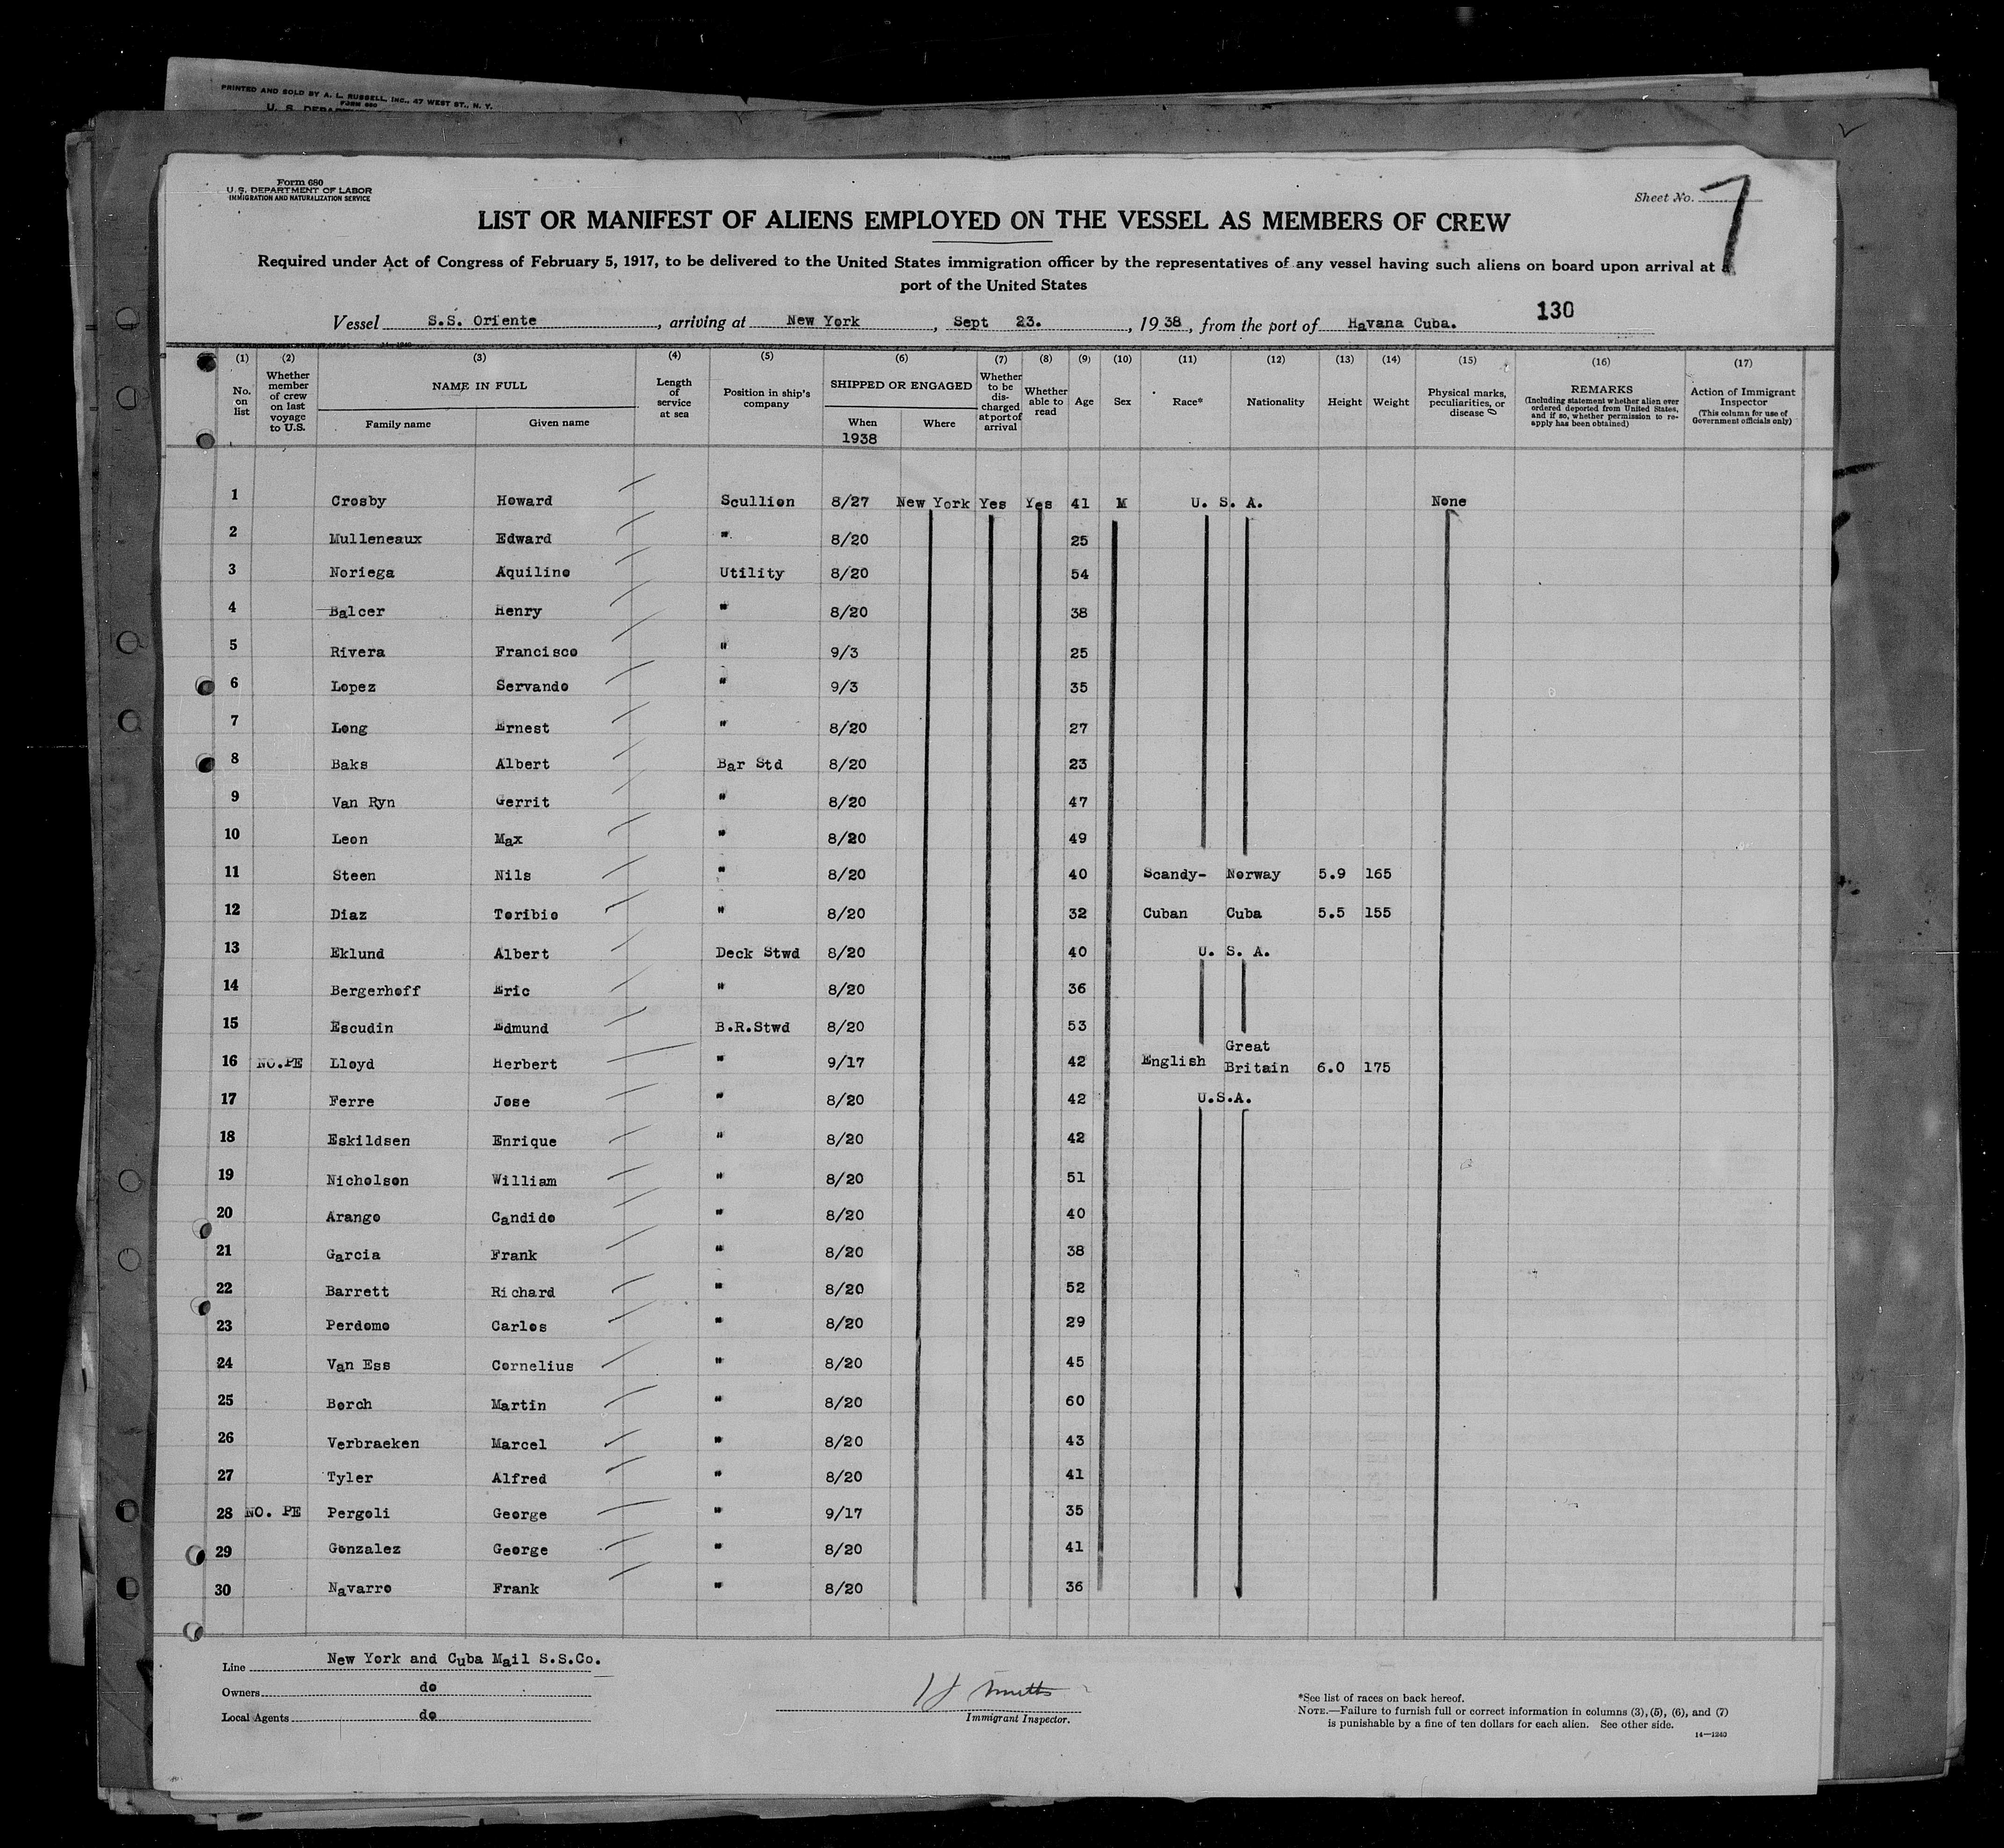 PRINTED AND SOLD BY A. L. RUSSELL, INC., 47 WEST ST., N. Y.
FORM 680
Form 680
U. S. DEPARTMENT OF LABOR
IMMIGRATION AND NATURALIZATION SERVICE
Sheet No. 7
LIST OR MANIFEST OF ALIENS EMPLOYED ON THE VESSEL AS MEMBERS OF CREW
Required under Act of Congress of February 5, 1917, to be delivered to the United States immigration officer by the representatives of any vessel having such aliens on board upon arrival at a
port of the United States
130
Vessel S.S. Oriente, arriving at New York, Sept 23., 1938, from the port of Havana Cuba.
(1) (2) (3) (4) (5) (6) (7) (8) (9) (10) (11) (12) (13) (14) (15) (16) (17)
No. on list
Whether member of crew on last voyage to U.S.
NAME IN FULL
Family name Given name
Length of service at sea
Position in ship's company
SHIPPED OR ENGAGED
When Where
1938
Whether to be discharged at port of arrival
Whether able to read
Age
Sex
Race*
Nationality
Height
Weight
Physical marks, peculiarities, or disease
REMARKS
(Including statement whether alien ever ordered deported from United States, and if so, whether permission to re-apply has been obtained)
Action of Immigrant Inspector
(This column for use of Government officials only)
1 Crosby Howard Scullion 8/27 New York Yes Yes 41 M U. S. A. None
2 Mulleneaux Edward " 8/20 25
3 Noriega Aquilino Utility 8/20 54
4 Balcer Henry " 8/20 38
5 Rivera Francisco " 9/3 25
6 Lopez Servando " 9/3 35
7 Long Ernest " 8/20 27
8 Baks Albert Bar Std 8/20 23
9 Van Ryn Gerrit " 8/20 47
10 Leon Max " 8/20 49
11 Steen Nils " 8/20 40 Scandy- Norway 5.9 165
12 Diaz Toribio " 8/20 32 Cuban Cuba 5.5 155
13 Eklund Albert Deck Stwd 8/20 40 U. S. A.
14 Bergerhoff Eric " 8/20 36
15 Escudin Edmund B.R.Stwd 8/20 53
16 NO.PE Lloyd Herbert " 9/17 42 English Great Britain 6.0 175
17 Ferre Jose " 8/20 42 U.S.A.
18 Eskildsen Enrique " 8/20 42
19 Nicholson William " 8/20 51
20 Arango Candido " 8/20 40
21 Garcia Frank " 8/20 38
22 Barrett Richard " 8/20 52
23 Perdomo Carlos " 8/20 29
24 Van Ess Cornelius " 8/20 45
25 Borch Martin " 8/20 60
26 Verbraeken Marcel " 8/20 43
27 Tyler Alfred " 8/20 41
28 NO. PE Pergoli George " 9/17 35
29 Gonzalez George " 8/20 41
30 Navarro Frank " 8/20 36
Line New York and Cuba Mail S.S.Co.
Owners do
Local Agents do
Immigrant Inspector.
*See list of races on back hereof.
NOTE.—Failure to furnish full or correct information in columns (3), (5), (6), and (7)
is punishable by a fine of ten dollars for each alien. See other side.
14—1240